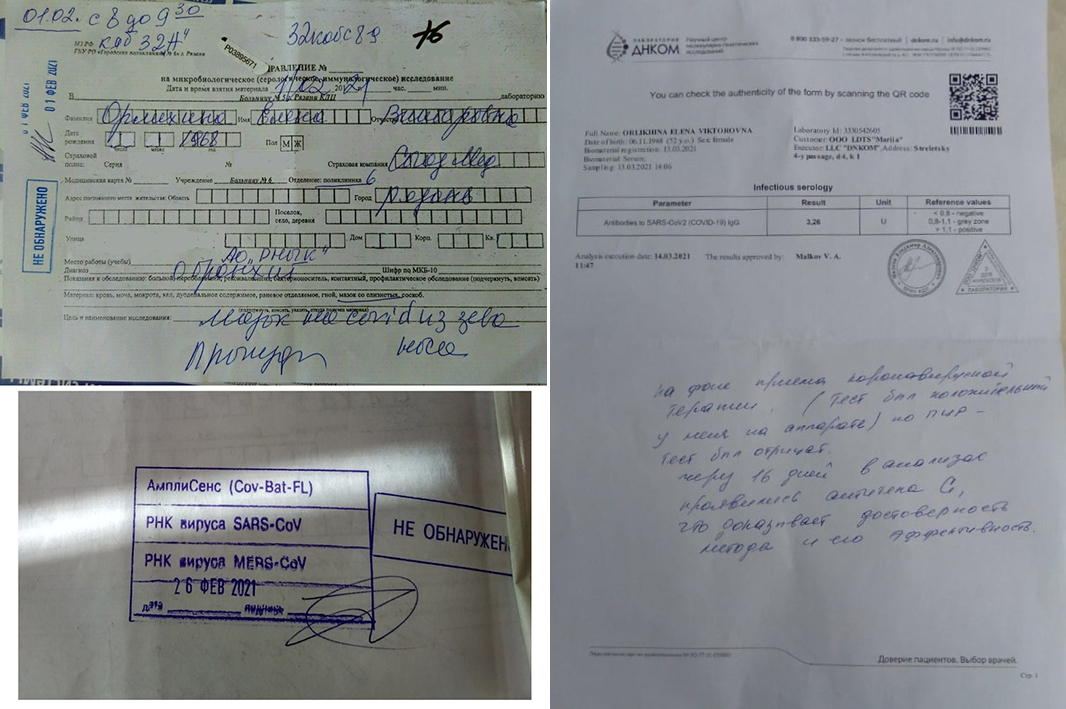 01.02. с 8 до 9 30
каб 32 "А"
32 кабс 89
МЗ РФ
P03895671
НАПРАВЛЕНИЕ №
на микробиологическое (серологическое, иммунологическое) исследование
Дата и время взятия материала 20 час. мин.
В Больницу № 6 г. Рязани КЛЦ лабораторию
01 ФЕВ 2021
01 ФЕВ 2021
Фамилия Имя Елена Отчество Викторовна
Дата рождения 1968 Пол М Ж
число месяц год
Страховой полис: Серия № Страховая компания Согаз Мед
Медицинская карта № Учреждение Больница № 6 Отделение: поликлиника 6
Адрес постоянного места жительства: Область Город Рязань
Район Поселок, село, деревня
Улица Дом Корп. Кв.
НЕ ОБНАРУЖЕНО
Место работы (учебы) АО "РНПК"
Диагноз О бронхит Шифр по МКБ-10
Показания к обследованию: больной, переболевший, реконвалесцент, бактерионоситель, контактный, профилактическое обследование (подчеркнуть, вписать)
Материал: кровь, моча, мокрота, кал, дуоденальное содержимое, раневое отделяемое, гной, мазок со слизистых, соскоб.
Цель и наименование исследования: мазок на covid из зева
носа
АмплиСенс (Cov-Bat-FL)
РНК вируса SARS-CoV
РНК вируса MERS-CoV
26 ФЕВ 2021
дата подпись
НЕ ОБНАРУЖЕН
ЛАБОРАТОРИЯ
ДНКОМ
Научный центр
молекулярно-генетических
исследований
8 800 333-59-27 - звонок бесплатный | dnkom.ru | info@dnkom.ru
You can check the authenticity of the form by scanning the QR code
Full Name: ORLIKHINA ELENA VIKTOROVNA
Date of birth: 06.11.1968 (52 y.o.) Sex: female
Biomaterial registration: 13.03.2021
Biomaterial: Serum;
Sampling: 13.03.2021 14:06
Laboratory Id: 3330542605
Customer: OOO LDTS "Mariia"
Executor: LLC "DNKOM", Address: Streletsky
4-y passage, d 4, k 1
Infectious serology
Parameter Result Unit Reference values
Antibodies to SARS-CoV2 (COVID-19) IgG 3,26 U < 0,8 - negative
0,8-1,1 - grey zone
> 1,1 - positive
Analysis execution date: 14.03.2021 The results approved by: Malkov V. A.
11:47
на фоне приема коронавирусной
терапии. (Тест был положительный
у меня на аппарате) но ПЦР -
тест был отрицат.
через 16 дней в анализах
проявились антитела G,
что доказывает достоверность
метода и его эффективность.
Доверие пациентов. Выбор врачей.
Стр. 1